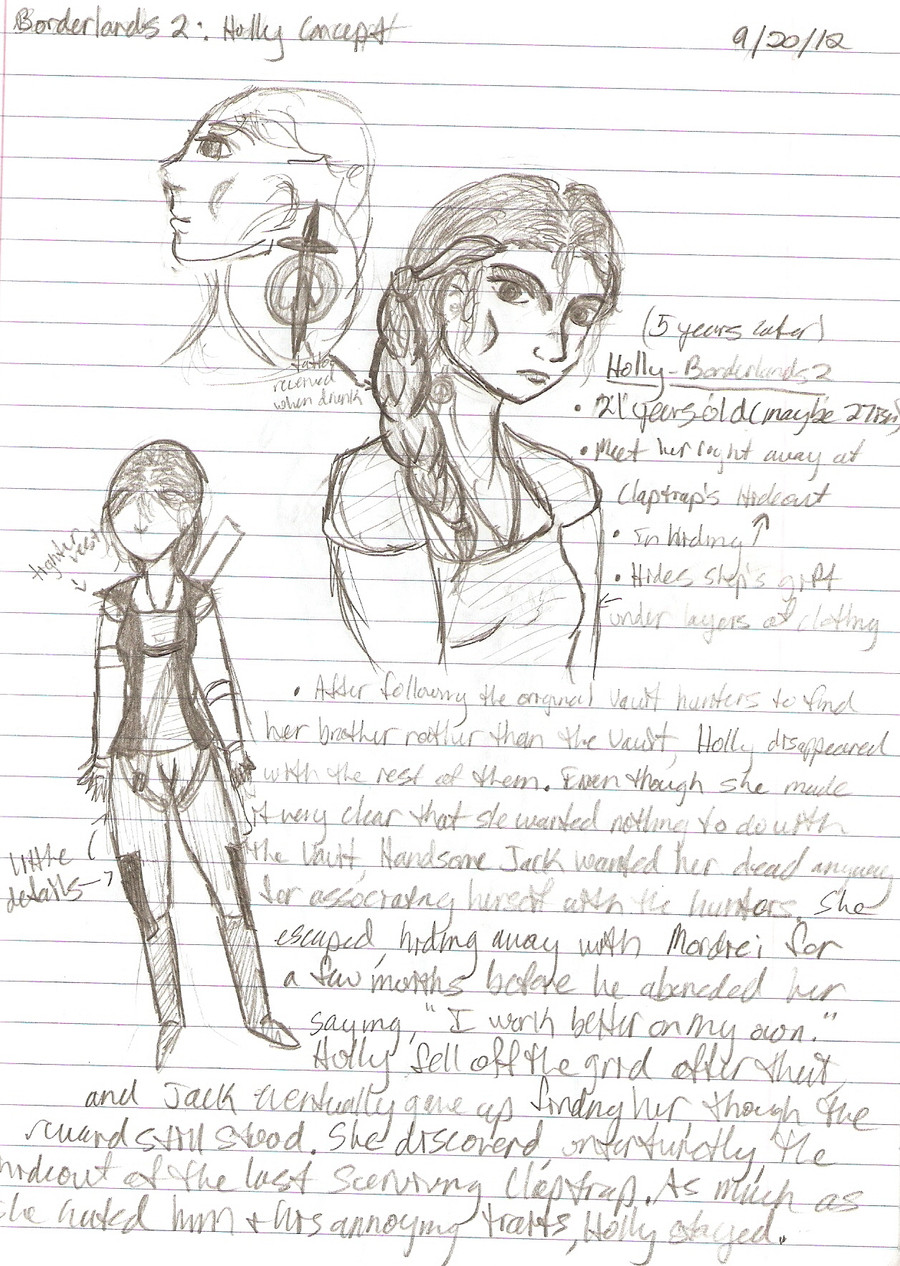 Borderlands 2: Holly Concept
9/20/12
tattoo
received
when drunk
(5 years later)
Holly-Borderlands 2
• 21 years old (maybe 27ish)
• Meet her right away at
Claptrap's Hideout
• In hiding
• Hides step's gift
under layers of clothing
tighter
vest
little
details
• After following the original vault hunters to find
her brother rather than the vault, Holly disappeared
with the rest of them. Even though she made
it very clear that she wanted nothing to do with
the vault, Handsome Jack wanted her dead anyway
for associating herself with the hunters. She
escaped, hiding away with Mordici for
a few months before he abended her
saying, "I work better on my own."
Holly fell off the grid after that,
and Jack eventually gave up finding her though the
reward still stood. She discoverd unfortunetly the
hideout of the last scerviving Claptrap. As much as
she hated him + his annoying traits, Holly stayed.